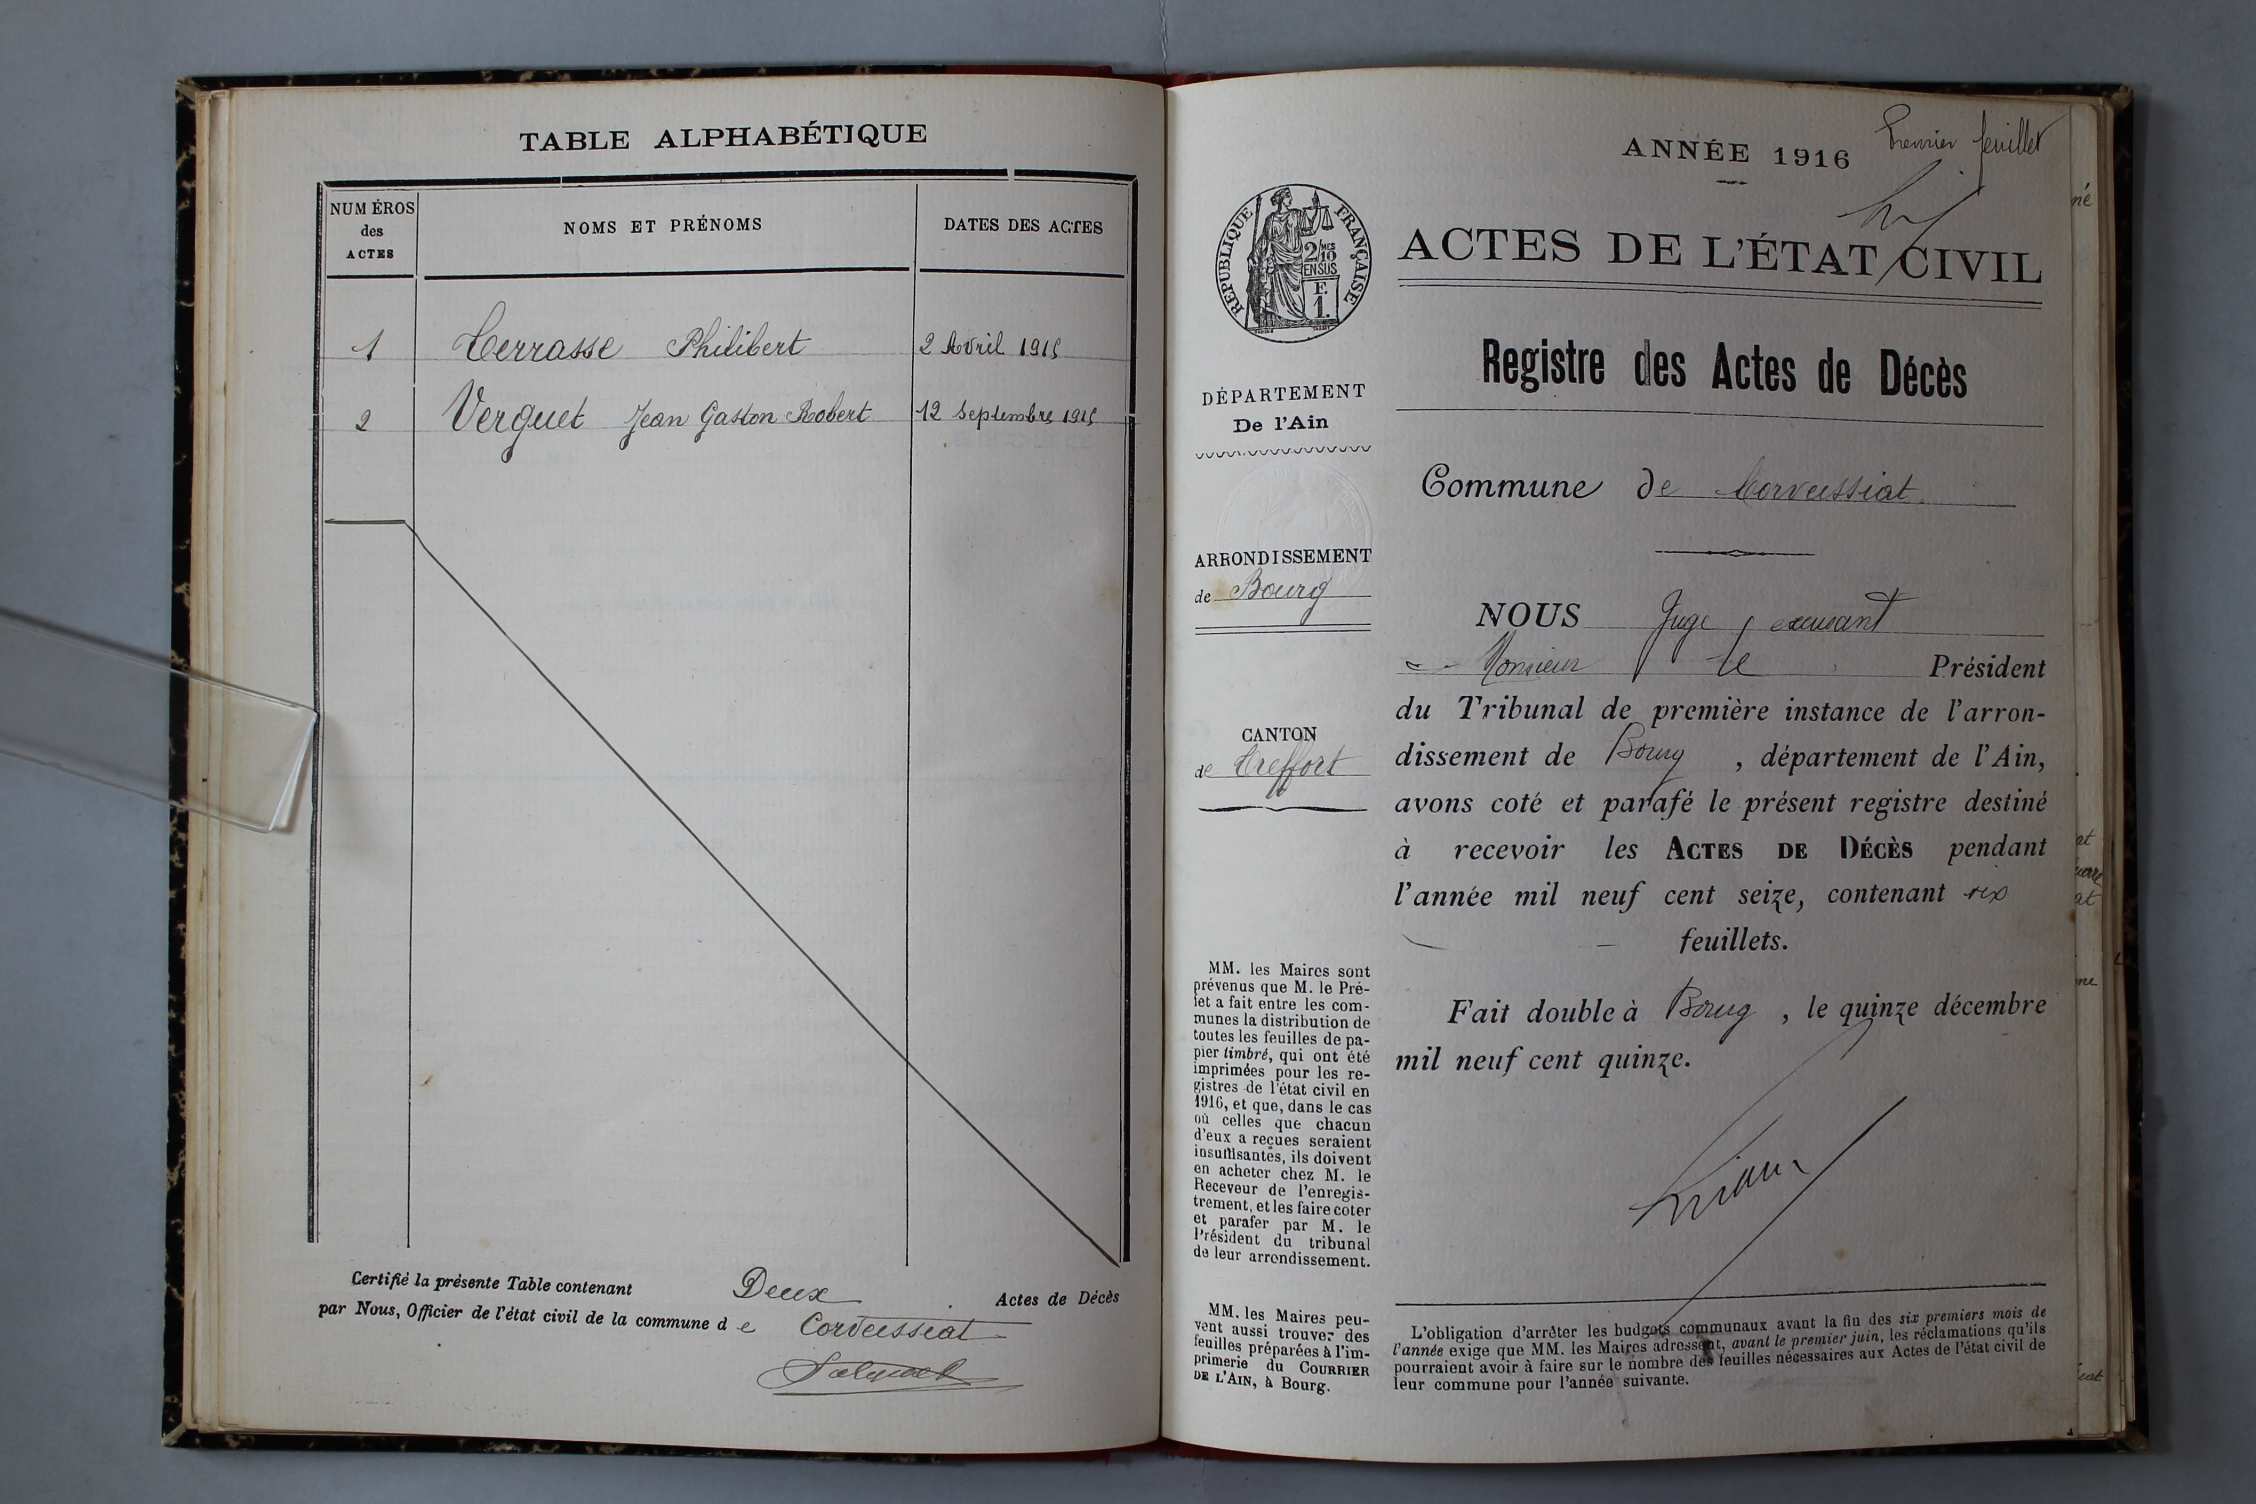 TABLE ALPHABÉTIQUE
NUMÉROS
des
ACTES
NOMS ET PRÉNOMS
DATES DES ACTES
1 Terrasse Philibert 2 Avril 1915
2 Verguet Jean Gaston Robert 12 Septembre 1915
Certifié la présente Table contenant Deux Actes de Décès
par Nous, Officier de l'état civil de la commune de Corveissiat
ANNÉE 1916
Premier feuillet
RÉPUBLIQUE FRANÇAISE
2/10MES
EN SUS
F.
1.
ACTES DE L'ÉTAT CIVIL
Registre des Actes de Décès
DÉPARTEMENT
De l'Ain
Commune de Corveissiat
ARRONDISSEMENT
de Bourg
CANTON
de Treffort
NOUS Juge
Monsieur le Président
du Tribunal de première instance de l'arron-
dissement de Bourg, département de l'Ain,
avons coté et parafé le présent registre destiné
à recevoir les ACTES DE DÉCÈS pendant
l'année mil neuf cent seize, contenant six
feuillets.
Fait double à Bourg, le quinze décembre
mil neuf cent quinze.
MM. les Maires sont
prévenus que M. le Pré-
fet a fait entre les com-
munes la distribution de
toutes les feuilles de pa-
pier timbré, qui ont été
imprimées pour les re-
gistres de l'état civil en
1916, et que, dans le cas
où celles que chacun
d'eux a reçues seraient
insuffisantes, ils doivent
en acheter chez M. le
Receveur de l'enregis-
trement, et les faire coter
et parafer par M. le
Président du tribunal
de leur arrondissement.
MM. les Maires peu-
vent aussi trouver des
feuilles préparées à l'im-
primerie du COURRIER
DE L'AIN, à Bourg.
L'obligation d'arrêter les budgets communaux avant la fin des six premiers mois de
l'année exige que MM. les Maires adressent, avant le premier juin, les réclamations qu'ils
pourraient avoir à faire sur le nombre des feuilles nécessaires aux Actes de l'état civil de
leur commune pour l'année suivante.